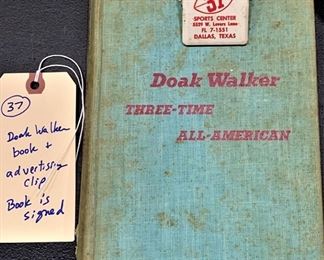 37
Doak Walker
book +
advertising
clip
Book is
signed
37
SPORTS CENTER
5529 W. Lovers Lane
FL 7-1551
DALLAS, TEXAS
Doak Walker
THREE-TIME
ALL-AMERICAN